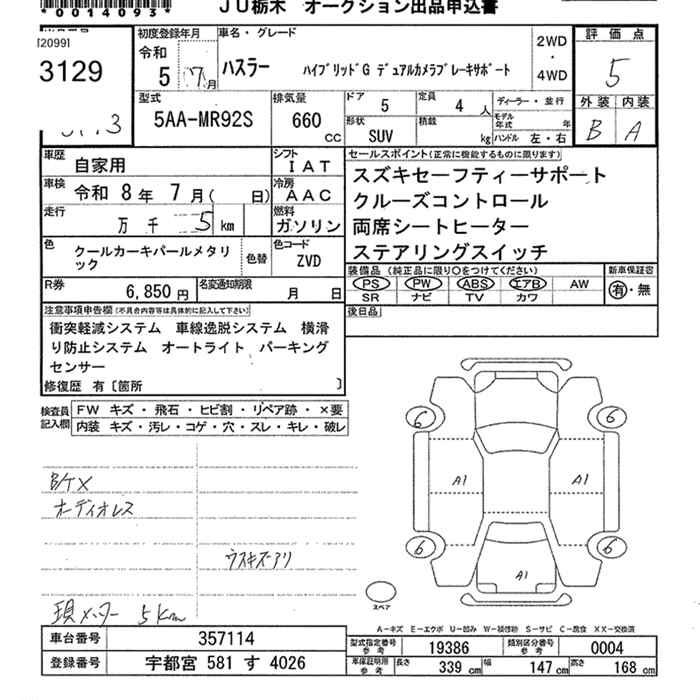 *0014093*
JU栃木 オークション出品申込書
3129
初度登録年月
令和
5 7月
車名・グレード
ハスラー ハイブリッドG デュアルカメラブレーキサポート
2WD
・
4WD
評価点
5
外装 内装
B A
型式
5AA-MR92S
排気量
660
CC
ドア
5
定員
4 人
形状
SUV
積載
kg
ディーラー・並行
モデル年式 年
ハンドル 左・右
車歴
自家用
シフト
IAT
車検
令和 8年 7月( 日)
冷房
AAC
走行
万 千 5 km
燃料
ガソリン
色
クールカーキパールメタリック
色替
色コード
ZVD
R券
6,850 円
名変通知期限
月 日
セールスポイント(正常に機能するものに限ります)
スズキセーフティーサポート
クルーズコントロール
両席シートヒーター
ステアリングスイッチ
装備品(純正品に限り○をつけてください)
PS PW ABS エアB AW
SR ナビ TV カワ
新車保証書
有・無
後日品
注意事項申告欄(不具合内容等は具体的に記入して下さい)
衝突軽減システム 車線逸脱システム 横滑
り防止システム オートライト パーキング
センサー
修復歴 有〔箇所 〕
検査員記入欄
FW キズ・飛石・ヒビ割・リペア跡・×要
内装 キズ・汚レ・コゲ・穴・スレ・キレ・破レ
オーディオレス
ウスキズアリ
現メーター 5Km
6 6
A1 A1
6 6
A1
スペア
A-キズ E-エクボ U-凹み W-補修跡 S-サビ C-腐食 XX-交換済
車台番号 357114
登録番号 宇都宮 581 す 4026
型式指定番号 参考 19386
類別区分番号 参考 0004
車保証明用 参考 長さ 339 cm 幅 147 cm 高さ 168 cm